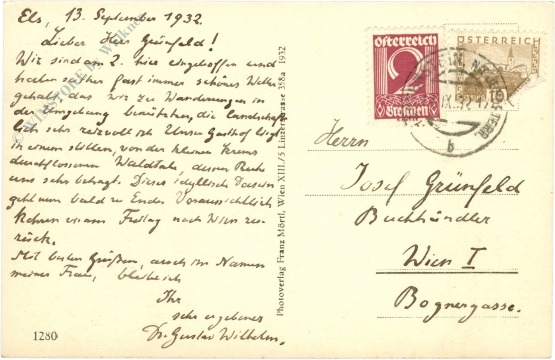 Els, 13. September 1932.
Lieber Herr Grünfeld!
Wir sind am 2. hier eingetroffen und
haben seither fast immer schönes Wetter
gehabt, das wir zu Wanderungen in
der Umgebung benützten, die landschaft-
lich sehr reizvoll ist. Unser Gasthof liegt
in einem stillen, von der kleinen Krems
durchflossenen Waldtale, dessen Ruhe
uns sehr behagt. Dieses idyllische Dasein
geht nun bald zu Ende. Voraussichtlich
kehren wir am Freitag nach Wien zu-
rück.
Mit besten Grüßen, auch im Namen
meiner Frau, bleibe ich
Ihr
sehr ergebener
Dr. Gustav Wilhelm.
1280
Photoverlag Franz Mörtl, Wien XIII./5 Linzerstrasse 358a 1932
Österreich
2
Groschen
ÖSTERREICH
10
Herrn
Josef Grünfeld
Buchhändler
Wien I
Bognergasse.